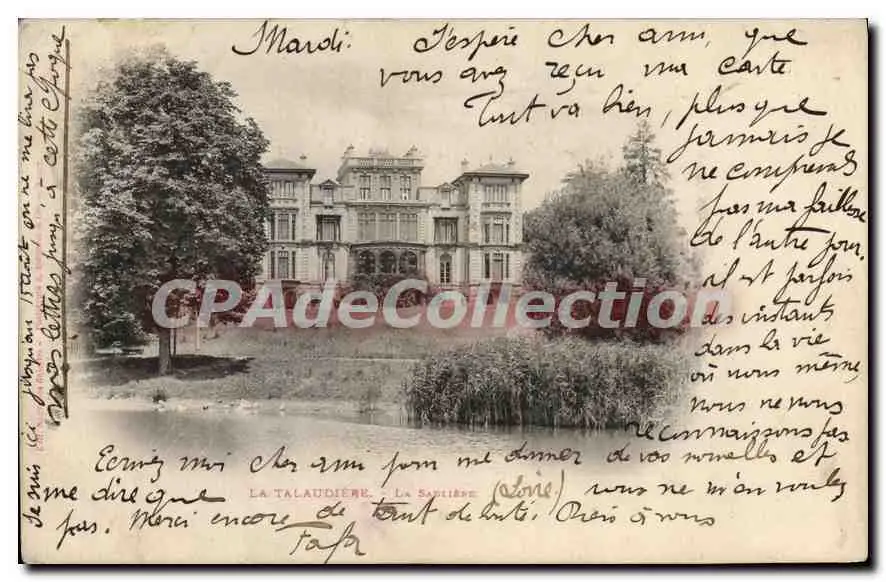 Mardi. J'espère cher ami, que
vous avez reçu ma carte
Tout va bien, plus que
jamais je
ne comprends
pas ma faiblesse
de l'autre jour,
il est parfois
des instants
dans la vie
où nous même
nous ne nous
reconnaissons pas
Ecrivez moi cher ami pour me donner de vos nouvelles et
me dire que
vous ne m'en voulez
pas. Merci encore de tout de bonté. Bien à vous
Fafa
LA TALAUDIÈRE. - LA SABLIÈRE (Loire)
Je suis ici jusqu'au 15 Août on ne me lira pas
mes lettres jusqu'à cette époque
CPA De Collection